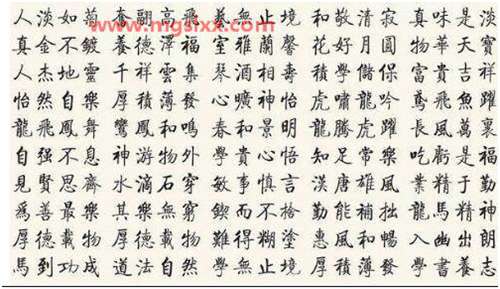 www.mgsixx.com
人淡如菊 奮翮高飛 無止境 和敬清寂 真味是淡
真金不鍍 養德澤福 室雅蘭馨 花好月圓 物華天寶
人杰地靈 千祥雲集 琴酒相壽 積學儲保 富貴吉祥
怡然自樂 厚積薄發 心曠神怡 虎嘯龍吟 鳶飛魚躍
龍飛鳳舞 鸞鳳和鳴 春和景明 龍騰虎躍 長風萬裏
自强不息 神游物外 學貴心悟 知足常樂 吃虧是福
見賢思齊 水滴石穿 敏事慎言 漢唐雄風 業精于勤
爲善最樂 其樂無窮 鍥而不捨 勤能補拙 龍馬精神
厚德載物 厚德載物 難得糊塗 惠風和暢 入幽出朗
馬到功成 道法自然 學無止境 厚積薄發 學書養志